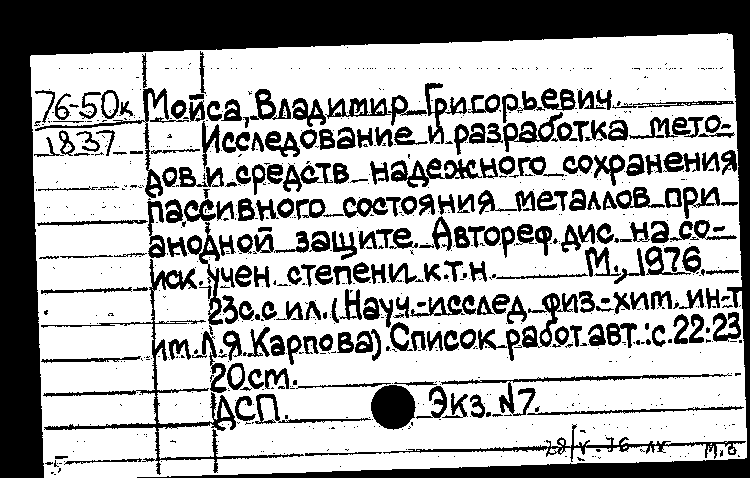 76-50к Мойса, Владимир Григорьевич.
1837 Исследование и разработка мето-
дов и средств надежного сохранения
пассивного состояния металлов при
анодной защите. Автореф. дис. на со-
иск. учен. степени к.т.н. М., 1976.
23с. с ил. (Науч.-исслед. физ.-хим. ин-т
им. Л.Я. Карпова). Список работ авт.: с. 22-23
20 см.
ДСП. Экз. №7.
28/V-76 М.З
5